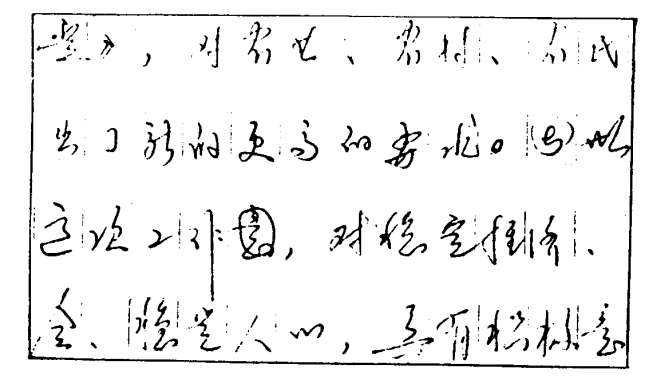 》，对农业、农村、农民
出了新的更高的要求。
这项工作，对稳定经济、
会、稳定人心，具有积极意